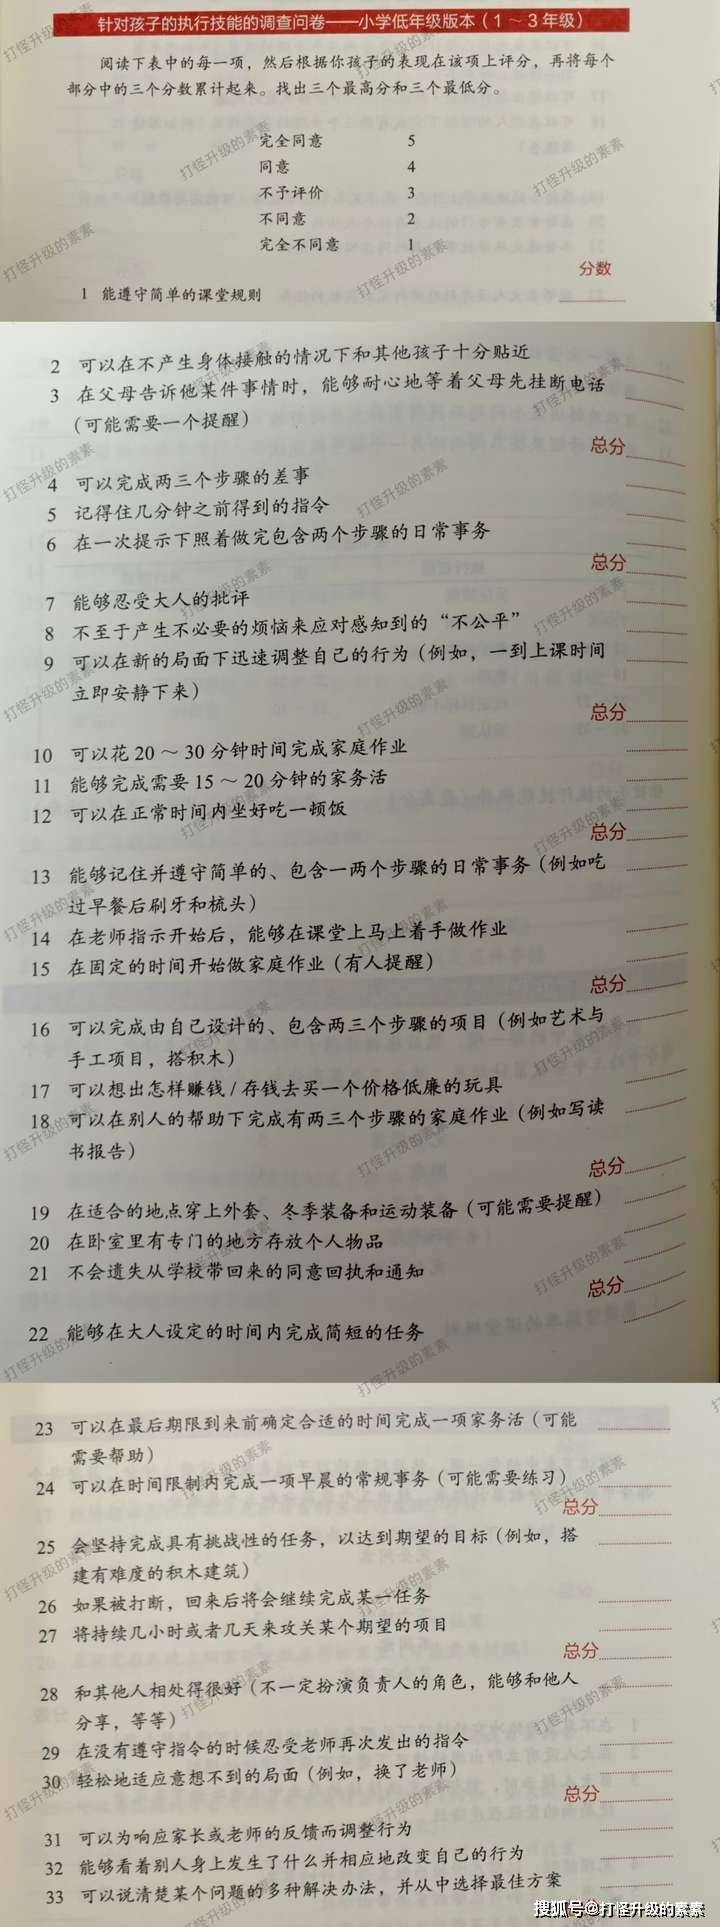 针对孩子的执行技能的调查问卷——小学低年级版本（1～3年级）
阅读下表中的每一项，然后根据你孩子的表现在该项上评分，再将每个
部分中的三个分数累计起来。找出三个最高分和三个最低分。
完全同意 5
同意 4
不予评价 3
不同意 2
完全不同意 1
分数
1 能遵守简单的课堂规则
2 可以在不产生身体接触的情况下和其他孩子十分贴近
3 在父母告诉他某件事情时，能够耐心地等着父母先挂断电话
（可能需要一个提醒）
总分
4 可以完成两三个步骤的差事
5 记得住几分钟之前得到的指令
6 在一次提示下照着做完包含两个步骤的日常事务
总分
7 能够忍受大人的批评
8 不至于产生不必要的烦恼来应对感知到的“不公平”
9 可以在新的局面下迅速调整自己的行为（例如，一到上课时间
立即安静下来）
总分
10 可以花20～30分钟时间完成家庭作业
11 能够完成需要15～20分钟的家务活
12 可以在正常时间内坐好吃一顿饭
总分
13 能够记住并遵守简单的、包含一两个步骤的日常事务（例如吃
过早餐后刷牙和梳头）
14 在老师指示开始后，能够在课堂上马上着手做作业
15 在固定的时间开始做家庭作业（有人提醒）
总分
16 可以完成由自己设计的、包含两三个步骤的项目（例如艺术与
手工项目，搭积木）
17 可以想出怎样赚钱/存钱去买一个价格低廉的玩具
18 可以在别人的帮助下完成有两三个步骤的家庭作业（例如写读
书报告）
总分
19 在适合的地点穿上外套、冬季装备和运动装备（可能需要提醒）
20 在卧室里有专门的地方存放个人物品
21 不会遗失从学校带回来的同意回执和通知
总分
22 能够在大人设定的时间内完成简短的任务
23 可以在最后期限到来前确定合适的时间完成一项家务活（可能
需要帮助）
24 可以在时间限制内完成一项早晨的常规事务（可能需要练习）
总分
25 会坚持完成具有挑战性的任务，以达到期望的目标（例如，搭
建有难度的积木建筑）
26 如果被打断，回来后将会继续完成某一任务
27 将持续几小时或者几天来攻关某个期望的项目
总分
28 和其他人相处得很好（不一定扮演负责人的角色，能够和他人
分享，等等）
29 在没有遵守指令的时候忍受老师再次发出的指令
30 轻松地适应意想不到的局面（例如，换了老师）
总分
31 可以为响应家长或老师的反馈而调整行为
32 能够看着别人身上发生了什么并相应地改变自己的行为
33 可以说清楚某个问题的多种解决办法，并从中选择最佳方案
搜狐号@打怪升级的素素
打怪升级的素素